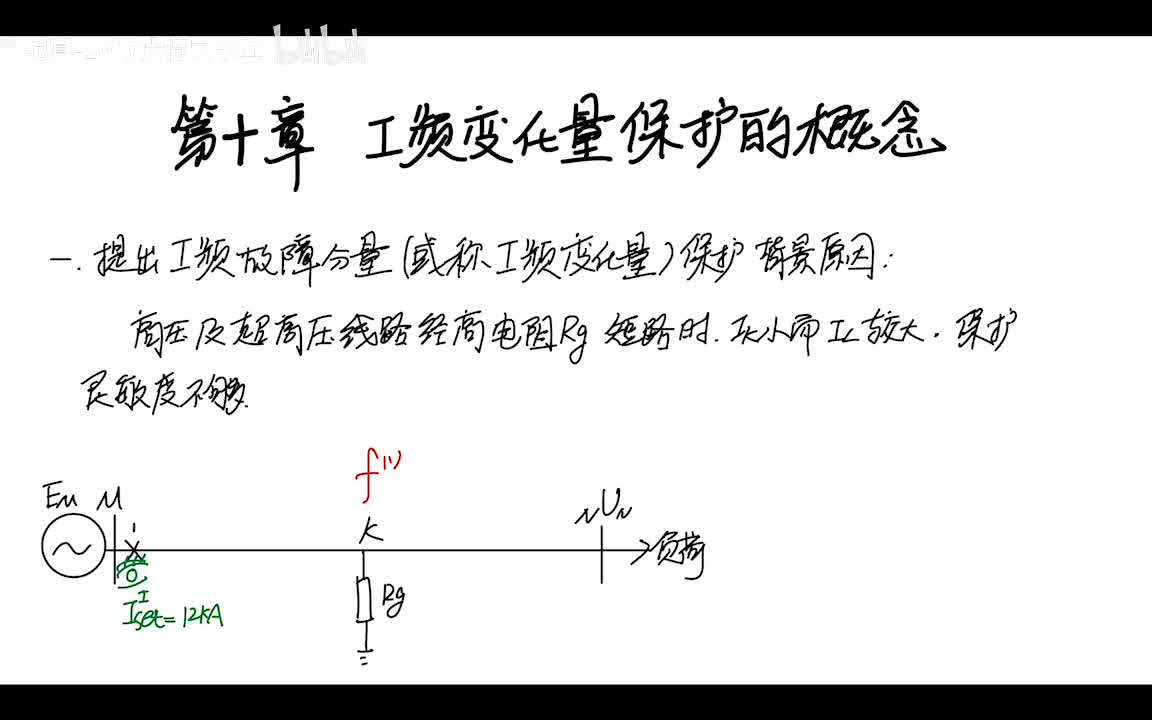 bilibili
第十章 工频变化量保护的概念
一.提出工频故障分量(或称工频变化量)保护背景原因:
高压及超高压线路经高电阻Rg 短路时.Ik小而IL较大.保护
灵敏度不够.
f⁽¹⁾
EM M
1
K
N UN
负荷
I
Iset=12kA
Rg